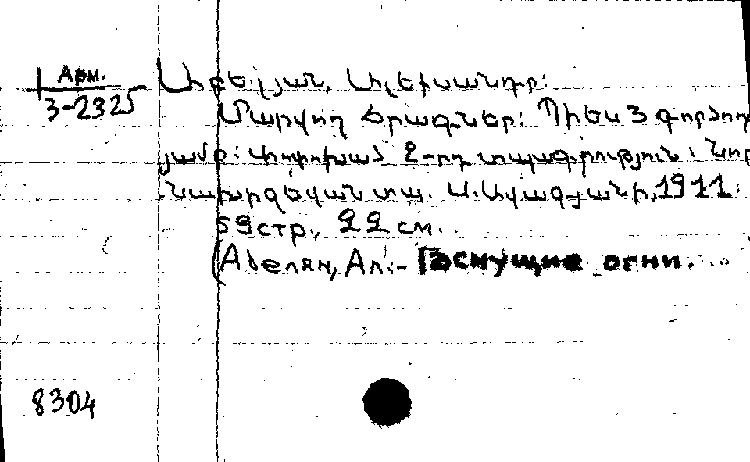 Арм.
3-2325
Աբելյան, Ալեքսանդր:
Մարվող ճրագներ: Պիես 3 գործող
յամբ: Փոփոխված 2-րդ տպագրություն: Նոր
Նախիջևան տպ. Ս. Ավագյանի, 1911:
59 стр., 22 см.
(Абелян, Ал.- Гаснущие огни.
8304